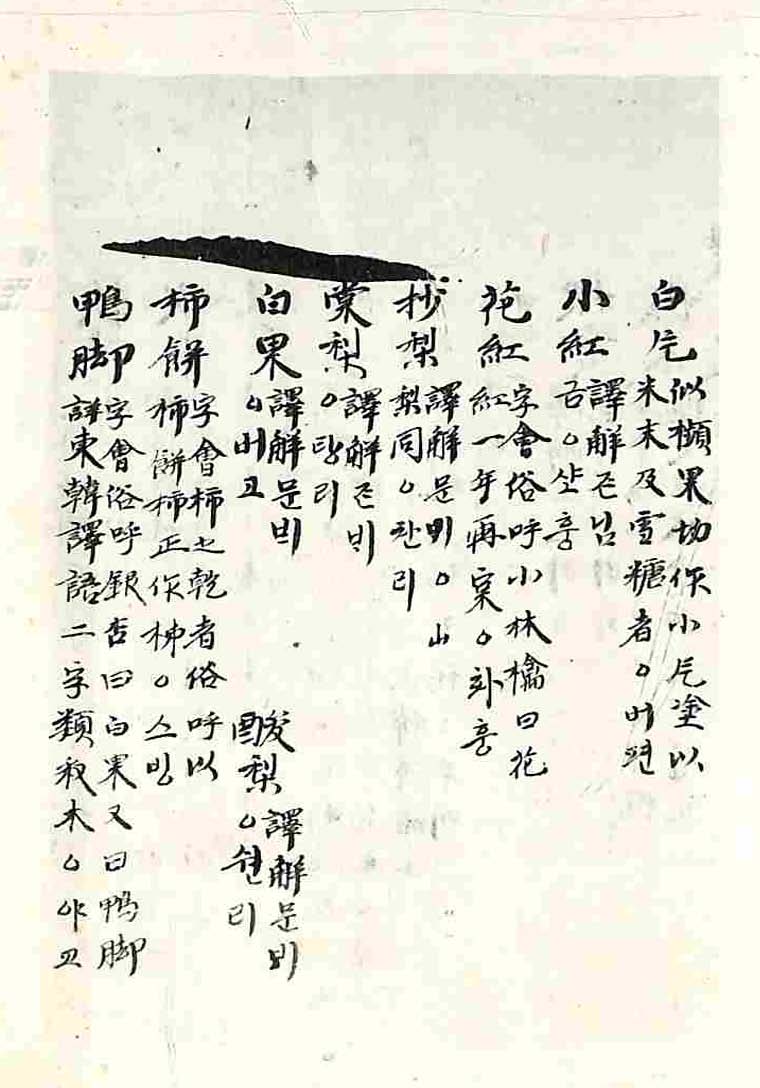 白片 似樧果切作小片塗以
米末及雪糖者○버편
小紅 譯解즌님
금○샾훙
花紅 字會俗呼小林檎曰花
紅一年再宲○화훙
抄梨 譯解문비○山
梨同○찬리
棠梨 譯解즌비
○탕리
白果 譯解믄비
○버고
酸梨 譯解문비
○숸리
柿餠 字會柿之乾者俗呼以
柿餠柿正作柹○스빙
鴨脚 字會俗呼銀杏曰白果又曰鴨脚
詳東韓譯語二字類秋木○야교